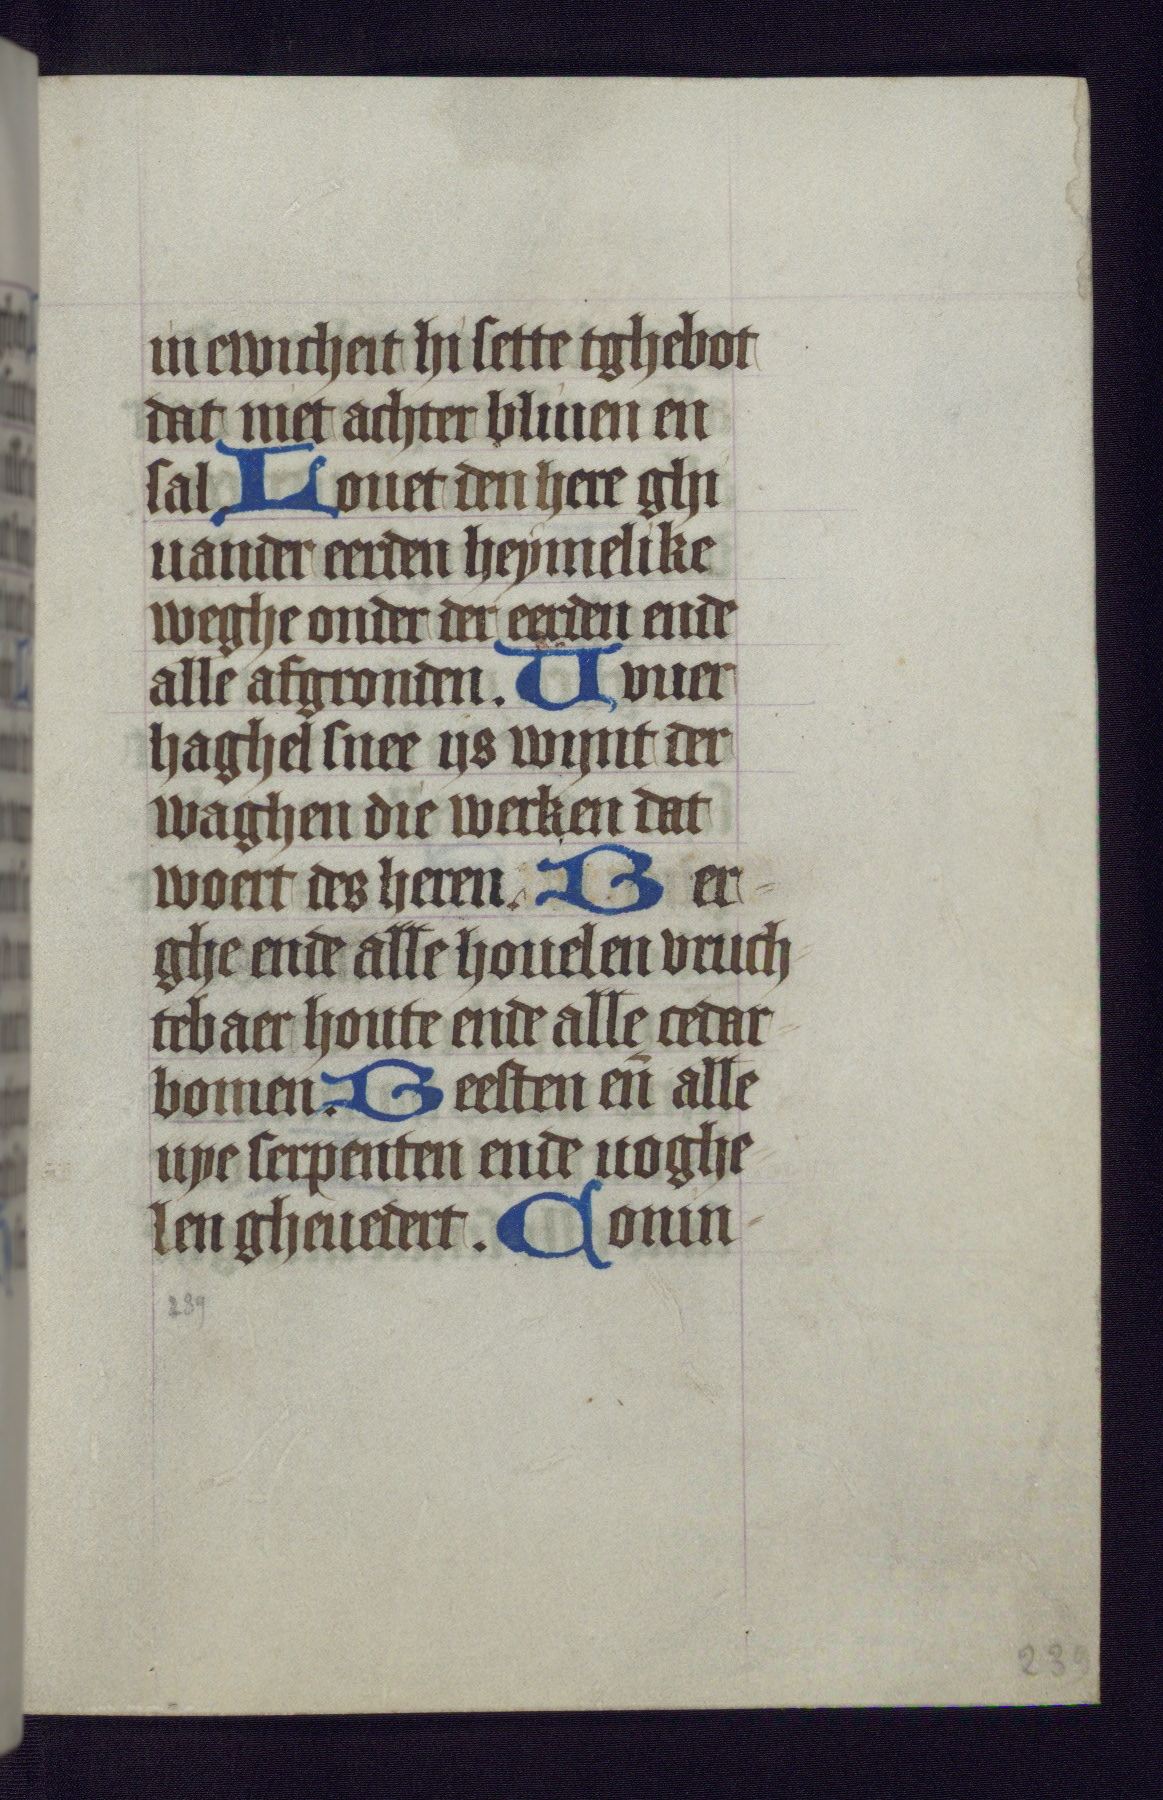 in ewicheit hi sette tghebot
dat niet achter bliuen en
sal Louet den here ghi
uander eerden heymelike
weghe onder der eerden ende
alle afgronden. Uvuer
haghel snee ijs wijnt der
waghen die werken dat
woert des heren. Ber-
ghe ende alle houelen vruch-
tebaer houte ende alle cedar-
bomen. Beesten en̄ alle
uye serpenten ende uoghe-
len gheuedert. Conin-
239
239